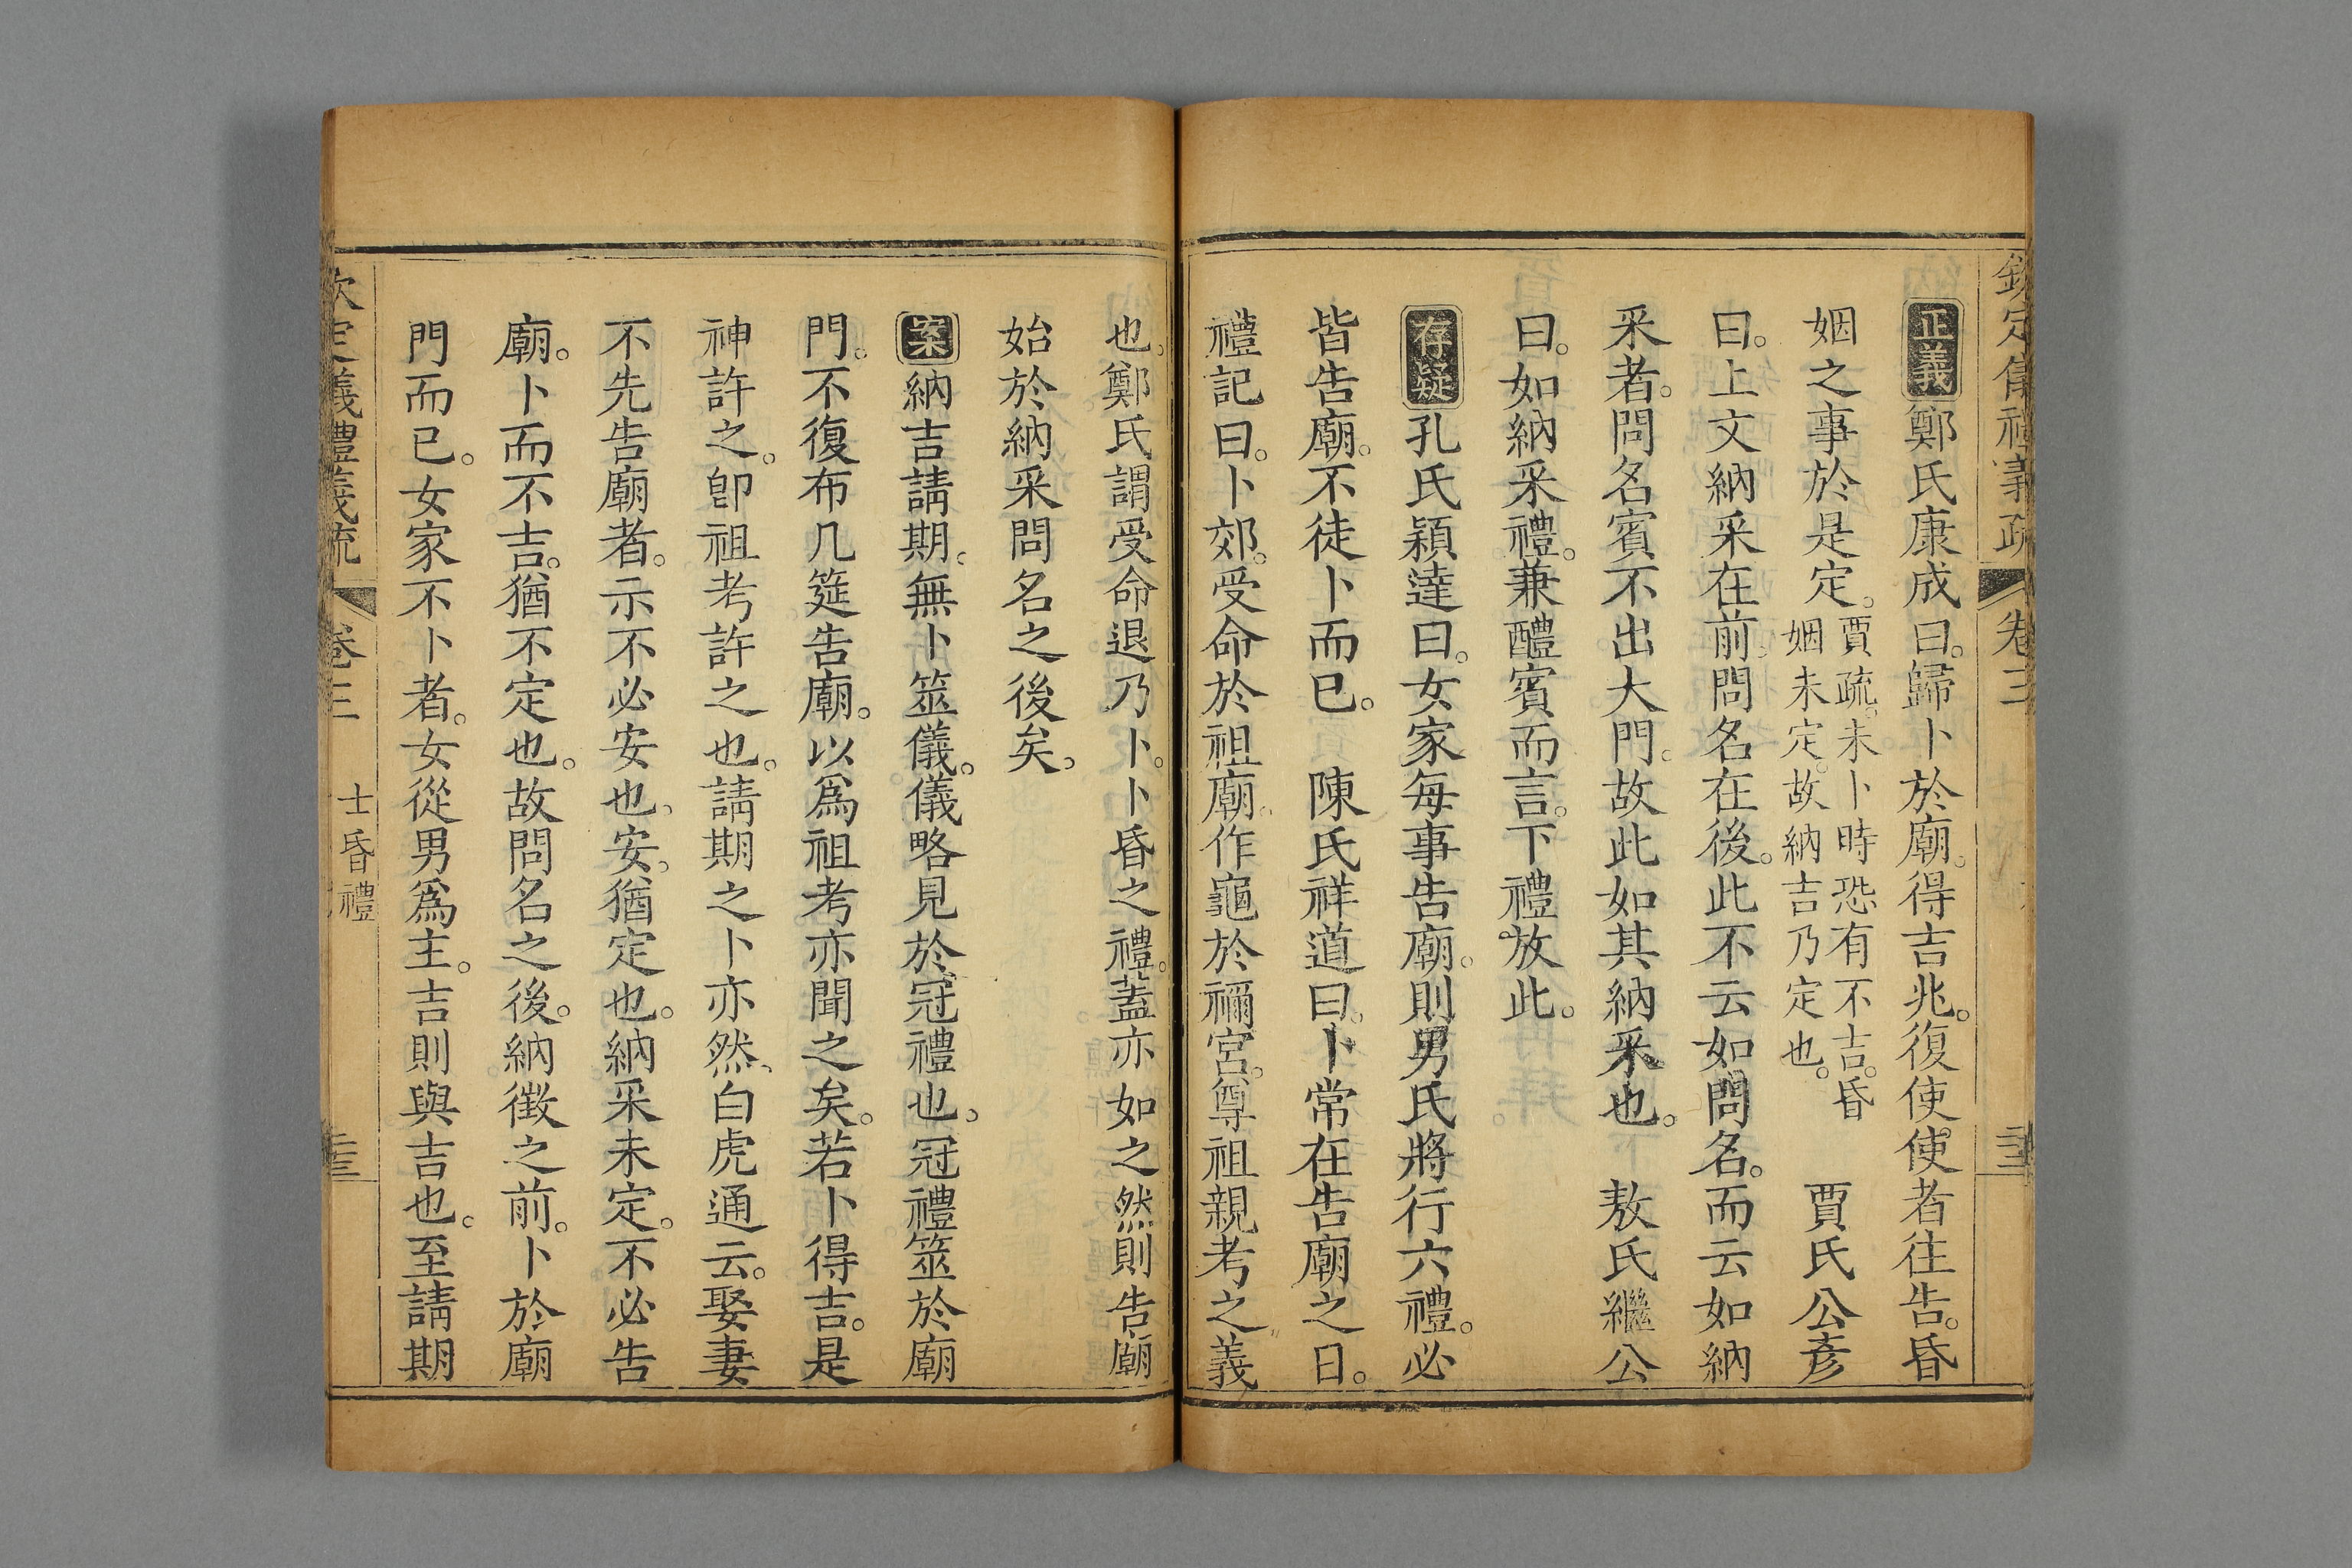 欽定儀禮義疏 卷三
正義鄭氏康成曰歸卜於廟得吉兆復使使者往告昏
姻之事於是定賈疏未卜時恐有不吉昏
姻未定故納吉乃定也 賈氏公彥
曰上文納采在前問名在後此不云如問名而云如納
采者問名賓不出大門故此如其納采也 敖氏繼公
曰如納采禮兼醴賓而言下禮放此
存疑孔氏穎達曰女家每事告廟則男氏將行六禮必
皆告廟不徒卜而已 陳氏祥道曰卜常在告廟之日
禮記曰卜郊受命於祖廟作龜於禰宮尊祖親考之義
也鄭氏謂受命退乃卜卜昏之禮蓋亦如之然則告廟
始於納采問名之後矣
案納吉請期無卜筮儀儀略見於冠禮也冠禮筮於廟
門不復布几筵告廟以爲祖考亦聞之矣若卜得吉是
神許之卽祖考許之也請期之卜亦然白虎通云娶妻
不先告廟者示不必安也安猶定也納采未定不必告
廟卜而不吉猶不定也故問名之後納徵之前卜於廟
門而已女家不卜者女從男爲主吉則與吉也至請期
欽定儀禮義疏 卷三 士昏禮